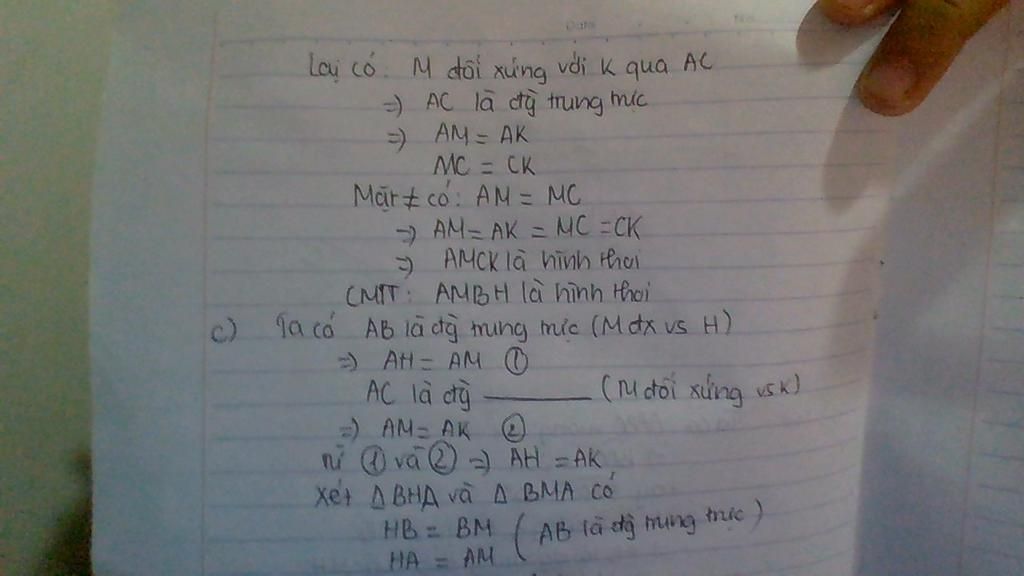 Lại có: M đối xứng với K qua AC
=> AC là đg̀ trung trực
=> AM = AK
MC = CK
Mặt ≠ có: AM = MC
=> AM = AK = MC = CK
=> AMCK là hình thoi
CMTT: AMBH là hình thoi
c) Ta có AB là đg̀ trung trực (M đx vs H)
=> AH = AM ①
AC là đg̀ ______ (M đối xứng vs K)
=> AM = AK ②
Từ ① và ② => AH = AK
Xét Δ BHA và Δ BMA có
HB = BM ( AB là đg̀ trung trực )
HA = AM